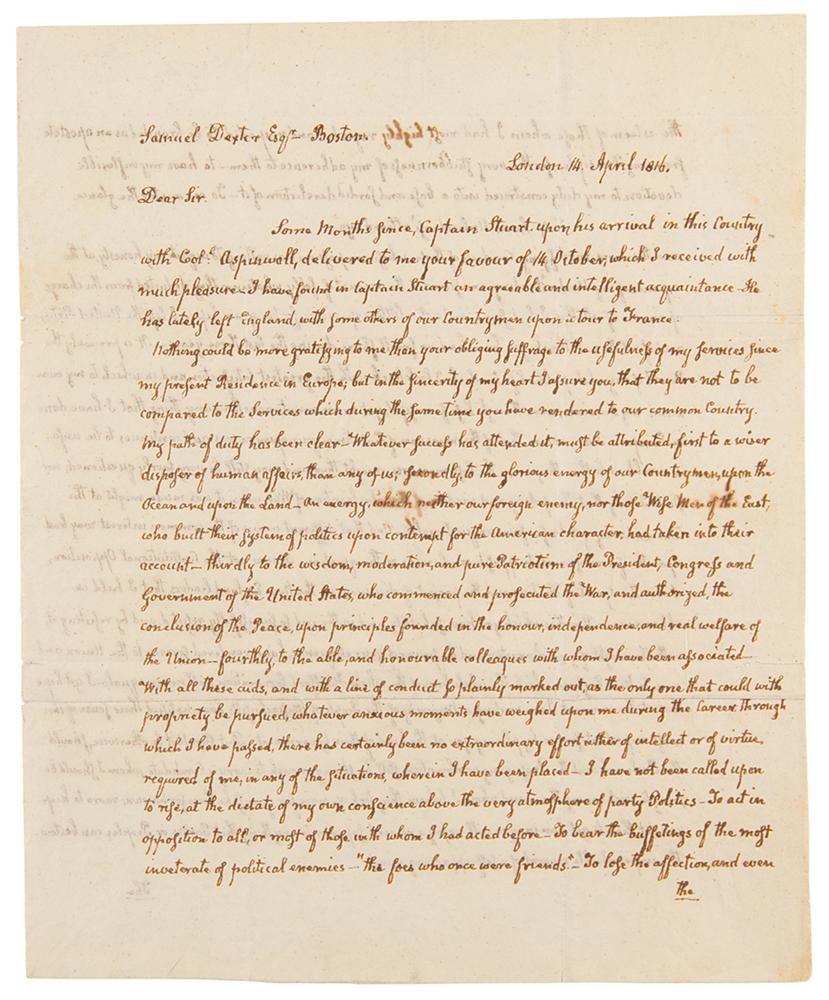 Samuel Dexter Esqr. Boston.
London 14. April 1816.
Dear Sir.
Some Months since, Captain Stuart upon his arrival in this Country
with Coll. Aspinwall, delivered to me your favour of 14 October, which I received with
much pleasure — I have found in Captain Stuart an agreeable and intelligent acquaintance — He
has lately left England, with some others of our Countrymen upon a tour to France.
Nothing could be more gratifying to me than your obliging suffrage to the usefulness of my services since
my present Residence in Europe; but in the sincerity of my heart I assure you, that they are not to be
compared to the Services which during the same time you have rendered to our common Country.
My path of duty has been clear — Whatever success has attended it, must be attributed, first to a wiser
disposer of human affairs, than any of us; secondly, to the glorious energy of our Countrymen, upon the
Ocean and upon the Land — An energy, which neither our foreign enemy, nor those Wise Men of the East,
who built their system of politics upon contempt for the American character, had taken into their
account — thirdly to the wisdom, moderation, and pure Patriotism of the President, Congress and
Government of the United States, who commenced and prosecuted the War, and authorized, the
conclusion of the Peace, upon principles founded in the honour, independence, and real welfare of
the Union — fourthly, to the able, and honourable colleagues with whom I have been associated —
With all these aids, and with a line of conduct so plainly marked out, as the only one that could with
propriety be pursued, whatever anxious moments have weighed upon me during the Career, through
which I have passed, there has certainly been no extraordinary effort either of intellect or of virtue,
required of me, in any of the situations, wherein I have been placed — I have not been called upon
to rise, at the dictate of my own conscience above the very atmosphere of party Politics — To act in
opposition to all, or most of those with whom I had acted before — To bear the buffetings of the most
inveterate of political enemies — "the foes who once were friends" — To lose the affection, and even
the